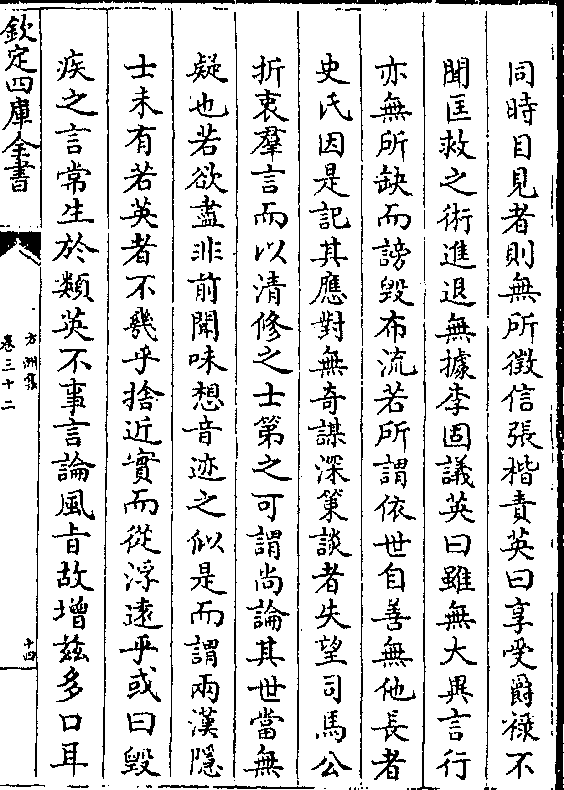 同時目見者則無所徵信張楷責英曰享受爵祿不
聞匡救之術進退無據李固議英曰雖無大異言行
亦無所缺而謗毀布流若所謂依世自善無他長者
史氏因是記其應對無奇謀深策談者失望司馬公
折衷羣言而以清修之士第之可謂尚論其世當無
疑也若欲盡非前聞味想音迹之似是而謂兩漢隱
士未有若英者不幾乎捨近實而從浮遠乎或曰毀
疾之言常生於類英不事言論風旨故增茲多口耳
欽定四庫全書
方洲集
卷三十二
十四